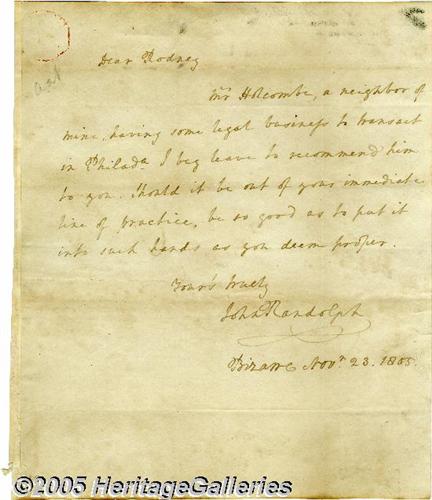 Dear Rodney
Mr Holcombe, a neighbor of
mine, having some legal business to transact
in Philada I beg leave to recommend him
to you. Should it be out of your immediate
line of practice, be so good as to put it
into such hands as you deem proper.
Your's truely
John Randolph
Bizarre Novr 23. 1805.
©2005 HeritageGalleries